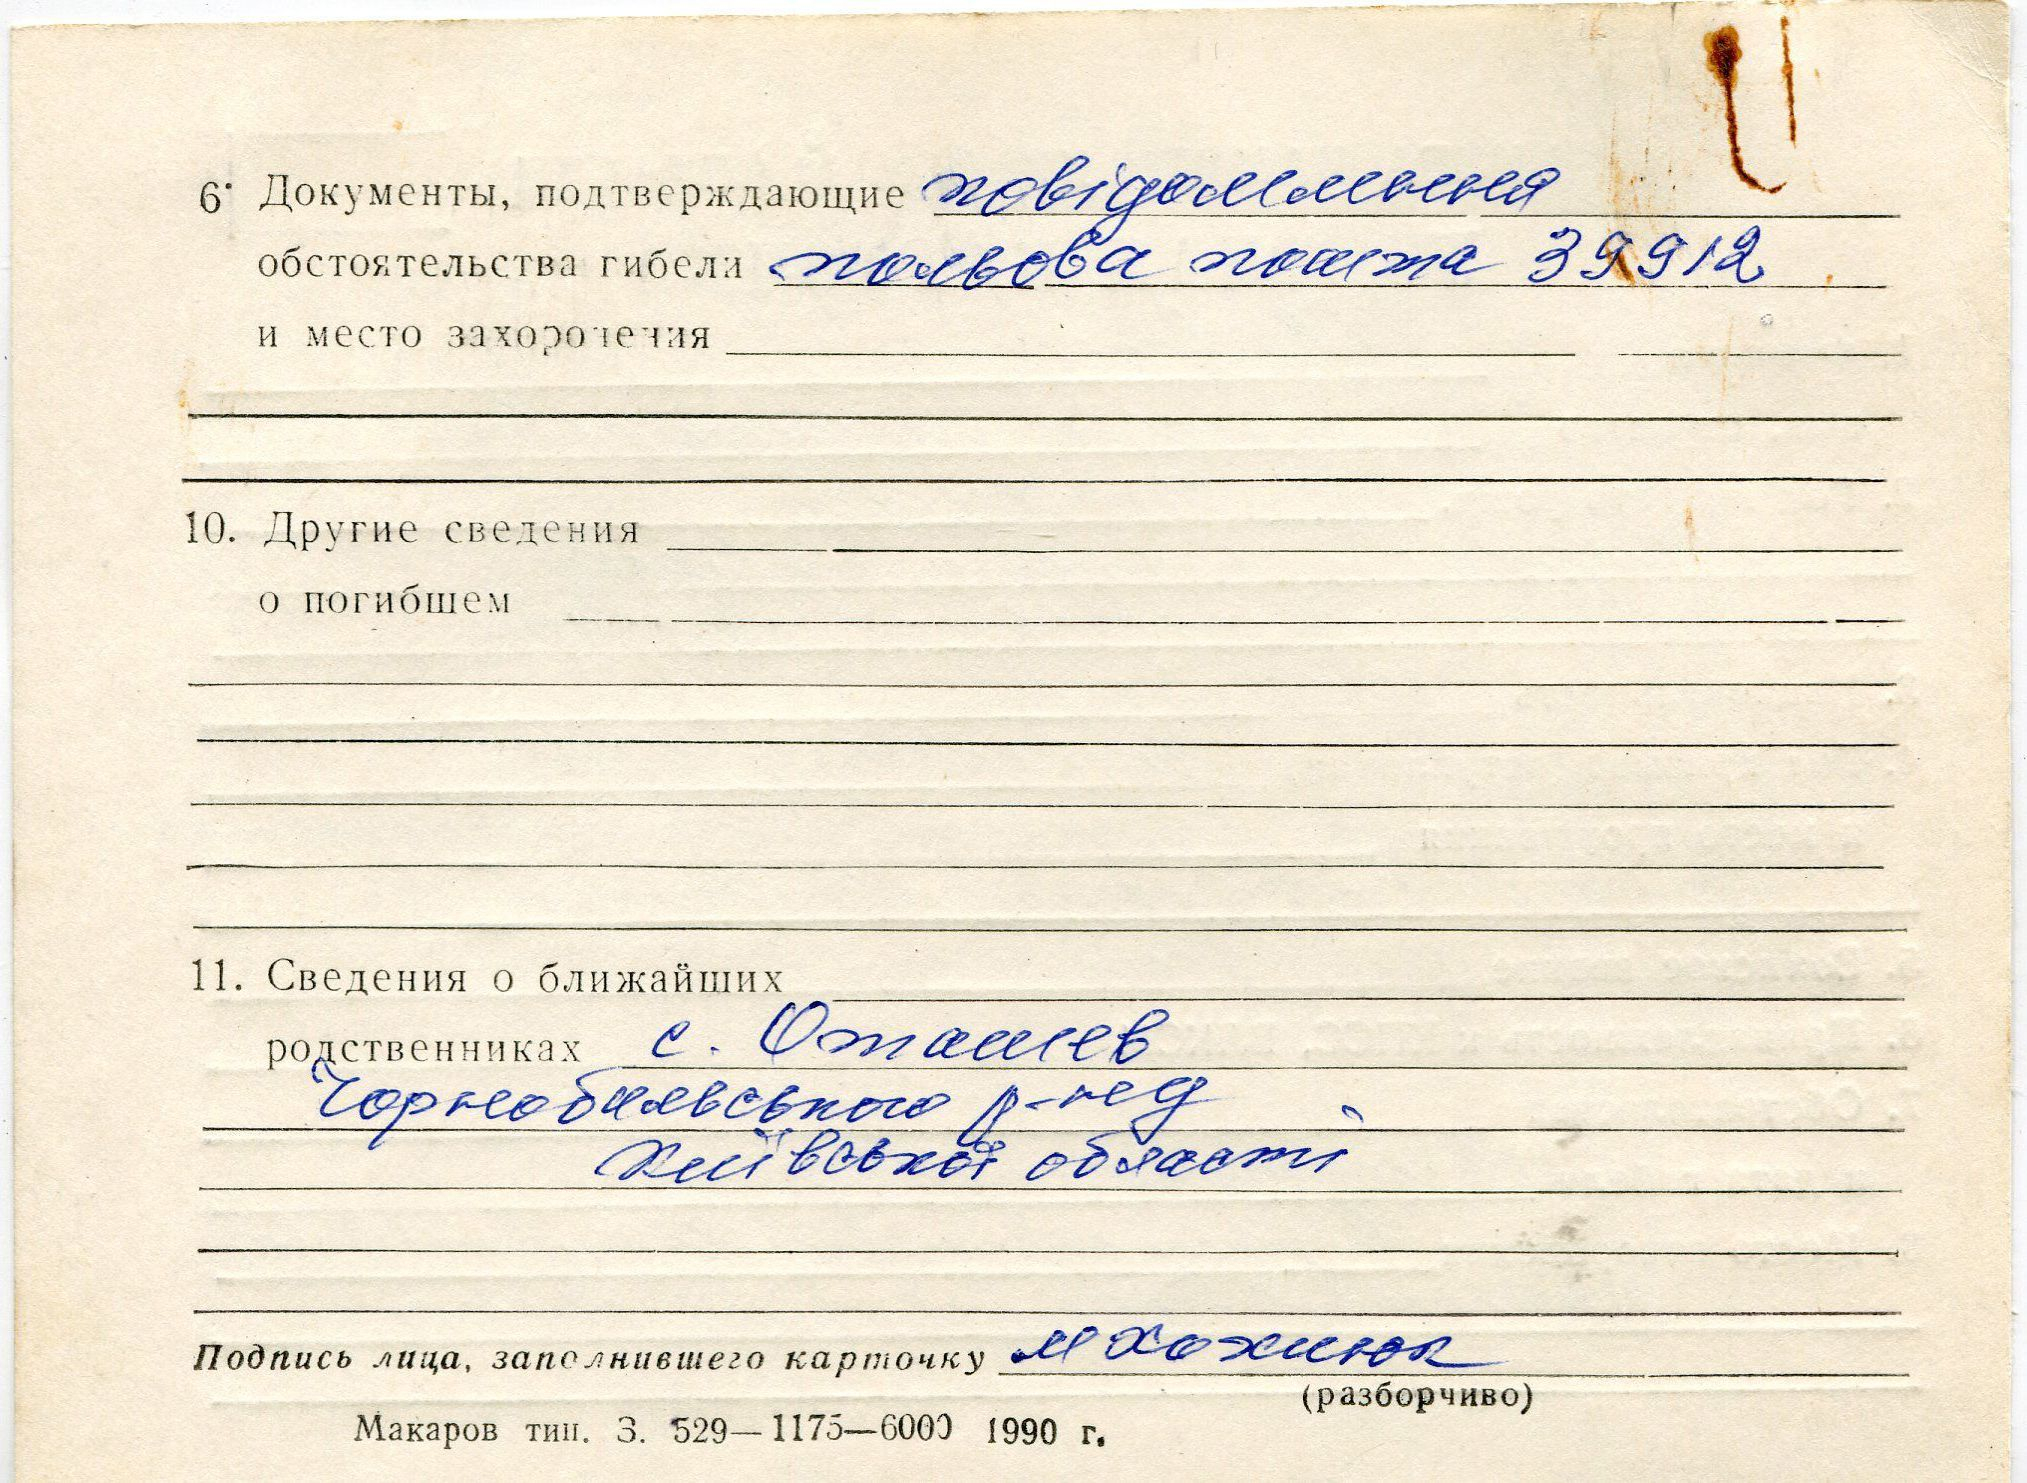 6. Документы, подтверждающие повідомлення
обстоятельства гибели польова пошта 39912
и место захоронения
10. Другие сведения
о погибшем
11. Сведения о ближайших
родственниках с. Оташев
Чорнобильського р-ну
Київської області
Подпись лица, заполнившего карточку М Хожнюк
(разборчиво)
Макаров тип. З. 529—1175—6000 1990 г.